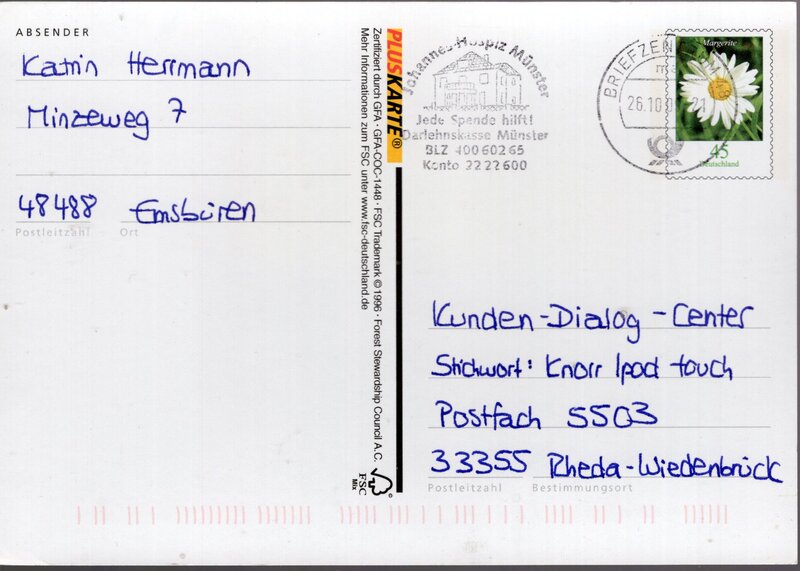 ABSENDER
Katrin Herrmann
Minzeweg 7
48488 Emsbüren
Postleitzahl Ort
PLUSKARTE®
Zertifiziert durch GFA · GFA-COC-1448 · FSC Trademark © 1996 · Forest Stewardship Council A.C.
Mehr Informationen zum FSC unter www.fsc-deutschland.de
FSC
Mix
Johannes-Hospiz Münster
Jede Spende hilft!
Darlehnskasse Münster
BLZ 400 602 65
Konto 22 22 600
26.10
21
Margerite
45
Deutschland
Kunden-Dialog-Center
Stichwort: Knorr Ipod touch
Postfach 5503
33355 Rheda-Wiedenbrück
Postleitzahl Bestimmungsort